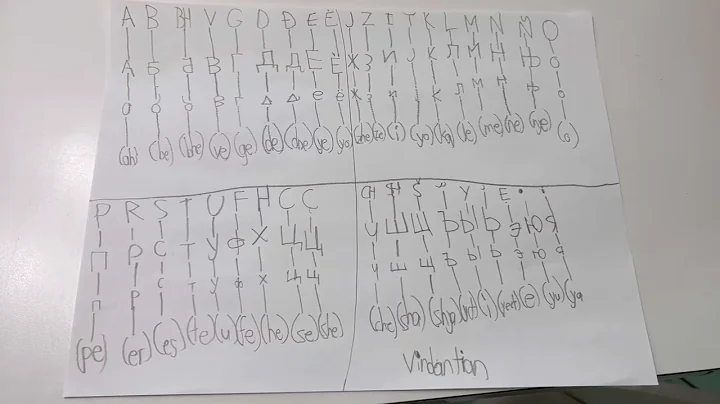 A B BH V G D Đ E Ë J Z I Y K L M N Ñ O
А Б В Г Д Д Е Ё Ж З И Ј К Л М Н Ф О
в г д д е ё ж з и к л м н ф о
(ah) (be) (bhe) (ve) (ge) (de) (dhe) (ye) (yo) (zhe) (ze) (i) (yo) (ka) (le) (me) (ne) (nye) (o)
P R S T U F H C Ç
П Р С Т У Ф Х Ц Ц
п р с т у ф х ц ц
(pe) (er) (es) (te) (u) (fe) (he) (se) (she)
CH SH Ŝ Y
Ч Ш Щ Ъ Ы Ь Э Ю Я
ч ш щ ъ ы ь э ю я
(che) (sha) (shya) (i) (e) (yu) (ya
Virdantian